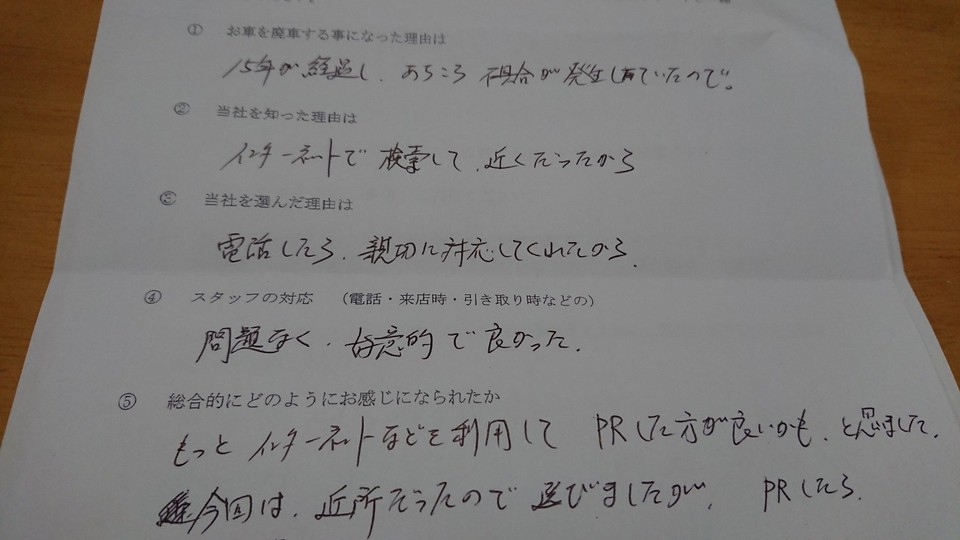 ① お車を廃車する事になった理由は
15年が経過し、あちこち 不具合が発生していたので。
② 当社を知った理由は
インターネットで検索して、近くだったから
③ 当社を選んだ理由は
電話したら、親切に対応してくれたから、
④ スタッフの対応 (電話・来店時・引き取り時などの)
問題なく、好意的で良かった、
⑤ 総合的にどのようにお感じになられたか
もっとインターネットなどを利用して PRした方が良いかも、と思いました、
今回は、近所だったので選びましたが、PRしたら